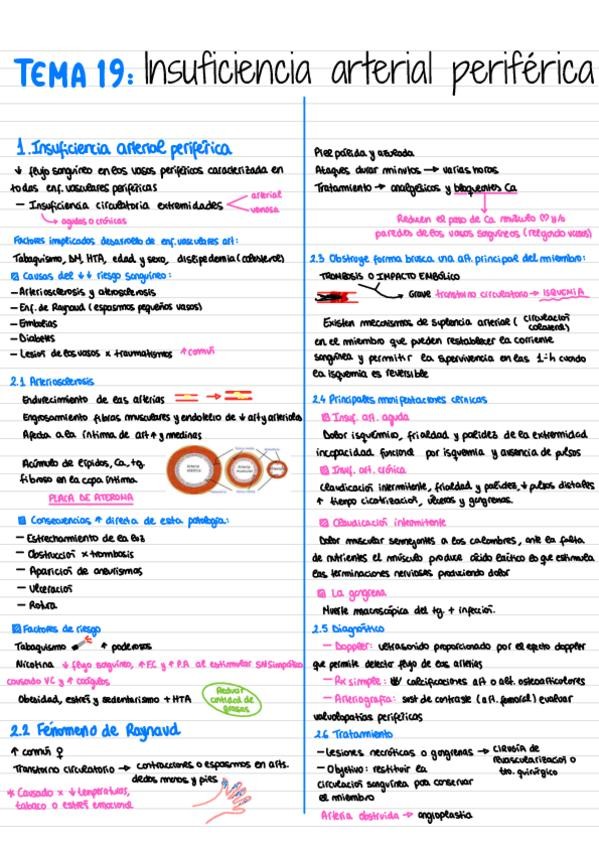 TEMA 19: Insuficiencia arterial periférica
1. Insuficiencia arterial periférica
↓ flujo sanguíneo en los vasos periféricos caracterizada en
todas enf. vasculares periféricas
— Insuficiencia circulatoria extremidades
arterial
venosa
agudas o crónicas
Factores implicados desarrollo de enf. vasculares art:
Tabaquismo, DM, HTA, edad y sexo, dislipedemia (colesterol)
Causas del ↓↓ riesgo sanguíneo:
— Arteriosclerosis y aterosclerosis
— Enf. de Raynaud (espasmos pequeños vasos)
— Embolias
— Diabetes
— Lesión de los vasos x traumatismos ↑ común
2.1 Arteriosclerosis
Endurecimiento de las arterias
Engrosamiento fibras musculares y endotelio de ↓ art y arteriolas
Afecta a la íntima de art ↑ y medinas
Acúmulo de lípidos, Ca, tg.
fibroso en la capa íntima.
PLACA DE ATEROMA
Consecuencias ↑ directa de esta patología:
— Estrechamiento de la luz
— Obstrucción x trombosis
— Aparición de aneurismas
— Ulceración
— Rotura
Factores de riesgo
Tabaquismo ↑ poderosos
Nicotina ↓ flujo sanguíneo, ↑ FC y ↑ P.A al estimular SN Simpático
causado VC y ↑ coágulos
Obesidad, estrés y sedentarismo + HTA
Reducir
cantidad de
grasas
2.2 Fenómeno de Raynaud
↑ común ♀
Transtorno circulatorio → contracciones o espasmos en arts.
dedos manos y pies
* Causado x ↓ temperaturas,
tabaco o estrés emocional
Piel pálida y azulada
Ataques durar minutos → varias horas
Tratamiento → analgésicos y bloquentes Ca
Reducen el paso de Ca músculo ♡ y/o
paredes de los vasos sanguíneos (relajando vasos)
2.3 Obstruye forma brusca una art. principal del miembro:
TROMBOSIS O IMPACTO EMBÓLICO
Grave transtorno circulatorio → ISQUEMIA
Existen mecanismos de suplencia arterial (circulación
colateral)
en el miembro que pueden restablecer la corriente
sanguínea y permitir la supervivencia en las 1ªh cuando
la isquemia es reversible
2.4 Principales manifestaciones clínicas
Insuf. art. aguda
Dolor isquémico, frialdad y palidez de la extremidad
incapacidad funcional por isquemia y ausencia de pulsos
Insuf. art. crónica
Claudicación intermitente, frialdad y palidez, ↓ pulsos distales
↑ tiempo cicatrización, úlceras y gangrenas.
Claudicación intermitente
Dolor muscular semejantes a los calambres, ante la falta
de nutrientes el músculo produce ácido láctico lo que estimula
las terminaciones nerviosas produciendo dolor
La gangrena
Muerte macroscópica del tg. + infección.
2.5 Diagnóstico
— Doppler: ultrasonido proporcionado por el efecto doppler
que permite detectar flujo de las arterias
— Rx simple: calcificaciones art o alt. osteoarticulares
— Arteriografía: sust de contraste (art. femoral) evaluar
valvulopatías periféricas
2.6 Tratamiento
— Lesiones necróticas o gangrenas → cirugía de
revascularización o
tto. quirúrgico
— Objetivo: restituir la
circulación sanguínea para conservar
el miembro
Arteria obstruida → angioplastia